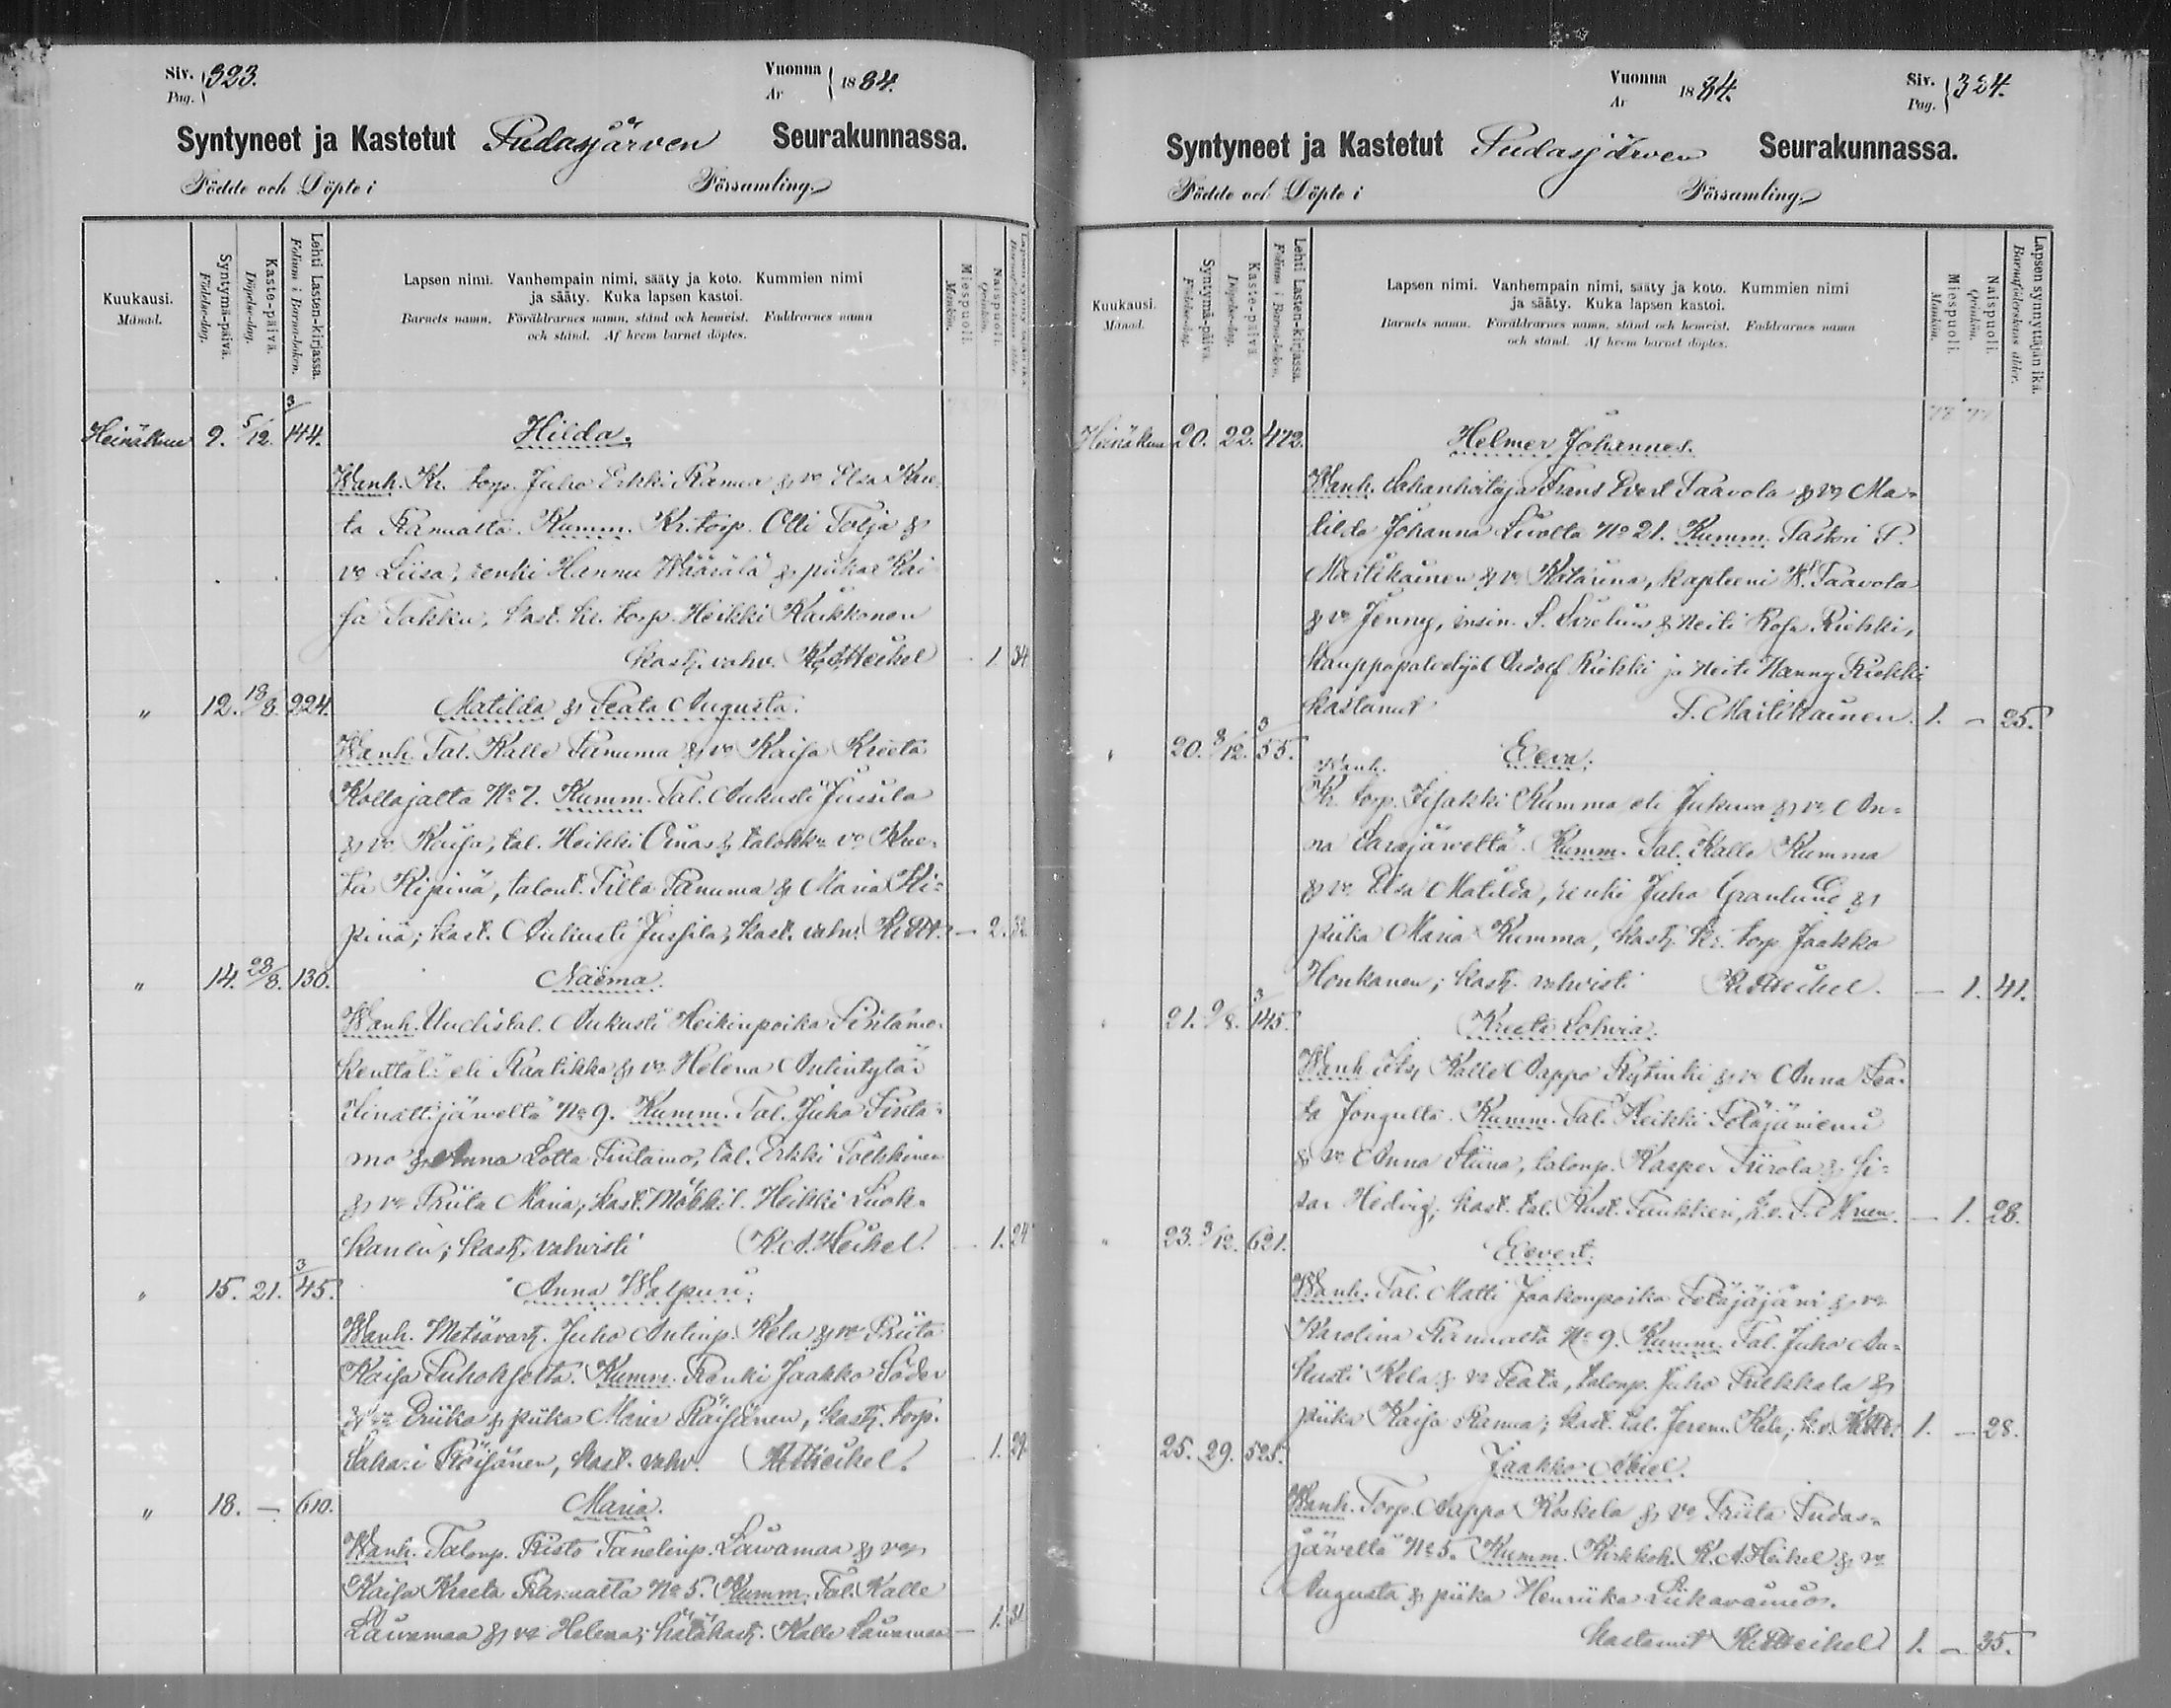 Siv. Pag. 323.
Vuonna År 1884.
Syntyneet ja Kastetut Pudasjärven Seurakunnassa.
Födde och Döpte i Församling.
Kuukausi. Månad.
Syntymä-päivä. Födelse-dag.
Kaste-päivä. Döpelse-dag.
Lehti Lasten-kirjassa. Folium i Barna-boken.
Lapsen nimi. Vanhempain nimi, sääty ja koto. Kummien nimi
ja sääty. Kuka lapsen kastoi.
Barnets namn. Föräldrarnes namn, stånd och hemvist. Faddrarnes namn
och stånd. Af hvem barnet döptes.
Miespuoli. Mankön.
Naispuoli. Qvinkön.
Heinäkuu 9. 5/12. 3/144. Hilda.
Wanh. Kr. torp. Juho Erkki Ranua & vo Elsa Kree-
ta Ranualta. Kumm. Kr. torp. Olli Tolja &
vo Liisa, renki Hannu Määrälä & piika Kai
sa Takku, kast. kr. torp. Heikki Kaikkonen
kast. vahv. K.A.Heikel - 1. 34.
" 12. 18/8. 224. Matilda & Peata Augusta.
Wanh. Tal. Kalle Panuma & vo Kaisa Kreeta
Kollajalta No 7. Kumm. Tal. Aukusti Jussila
& vo Kaisa, tal. Heikki Ouna & talokk. vo Kree-
ta Kipinä, talont. Tilta Panuma & Maria Ki=
pinä; kast. Aukusti Jussila; kast. vahv. K.A.H. - 2. 32.
" 14. 28/8. 130. Naëma.
Wanh. Uudistal. Aukusti Heikinpoika Pintamo.
Kenttälä eli Raatikka & vo Helena Antintytär
Iinattijärveltä No 9. Kumm. Tal. Juho Pinta-
mo & Anna Lotta Pintamo, tal. Erkki Tolkkinen
& vo Priita Maria, kast. Mökkil. Heikki Luok-
kanen; kast. vahvisti K.A.Heikel. - 1. 24
" 15. 21. 3/45. Anna Walpuri.
Wanh. Metsävart. Juho Antinp. Kela & vo Priita
Kaisa Puhokselta. Kumm. Renki Jaakko Söder
& vo Priika & piika Maria Räisänen, kast. torp.
Sakari Räisänen, kast. vahv. K.A.Heikel. - 1. 29.
" 18. - 610. Maria.
Wanh. Talonp. Risto Tanelinp. Lauramaa & vo
Kaisa Kreeta Ranualta No 5. Kumm. Tal. Kalle
Lauramaa & vo Helena; hätäkast. Kalle Lauramaa - 1. 31.
Vuonna År 1884.
Siv. Pag. 324.
Syntyneet ja Kastetut Pudasjärven Seurakunnassa.
Födde och Döpte i Församling.
Kuukausi. Månad.
Syntymä-päivä. Födelse-dag.
Kaste-päivä. Döpelse-dag.
Lehti Lasten-kirjassa. Folium i Barna-boken.
Lapsen nimi. Vanhempain nimi, sääty ja koto. Kummien nimi
ja sääty. Kuka lapsen kastoi.
Barnets namn. Föräldrarnes namn, stånd och hemvist. Faddrarnes namn
och stånd. Af hvem barnet döptes.
Miespuoli. Mankön.
Naispuoli. Qvinkön.
Lapsen synnyttäjän ikä. Barnaföderskans ålder.
Heinäkuu 20. 22. 472. Helmer Johannes.
Wanh. Sahanhoitaja Frans Evert Paavola & vo Ma-
tilda Johanna No 21. Kumm. Pastori P.
Mailikainen & vo Katarina, kapteeni K. Paavola
& vo Jenny, insin. & Neiti Rosa Riekki,
kauppapalvelija Adolf Riekki ja Neiti Nanny Riekki
kastanut P. Mailikainen. 1. - 25.
" 20. 8/12. 3/55. Eeva.
Wanh.
Kr. torp. Iisakki Kumma eli Jukura & vo An-
na Sarajärveltä. Kumm. Tal. Kalle Kumma
& vo Elsa Matilda, renki Juho Granlund &
piika Maria Kumma, kast. kr. torp Jaakko
Honkanen; kast. vahvisti K.A.Heikel. - 1. 41.
" 21. 9/8. 3/145. Kreeta Sohvia.
Wanh. Its. Kalle Aappo Rytinki & vo Anna Pea-
ta Jongulta. Kumm. Tal. Heikki Petäjäniemi
& vo Anna Stiina, talonp. Kasper Piirola & si-
sar Hedvig; kast. tal. Kust. Tuukkeri, - 1. 28.
" 23. 3/12. 621. Eevert.
Wanh. Tal. Matti Jaakonpoika Petäjäjärvi & vo
Karolina Ranualta No 9. Kumm. Tal. Juho Au-
kusti Kela & vo Peata, talonp. Juho Pirkkala &
piika Kaisa Ranua; kast. tal. Jerem. Kela; k.v. K.A.H. 1. - 28.
" 25. 29. 525. Jaakko Abiel.
Wanh. Torp. Aappo Koskela & vo Priita Pudas-
järveltä No 5. Kumm. Kirkkoh. K.A.Heikel & vo
Augusta & piika Henriika Liikavainio.
kastanut K.A.Heikel 1. - 35.